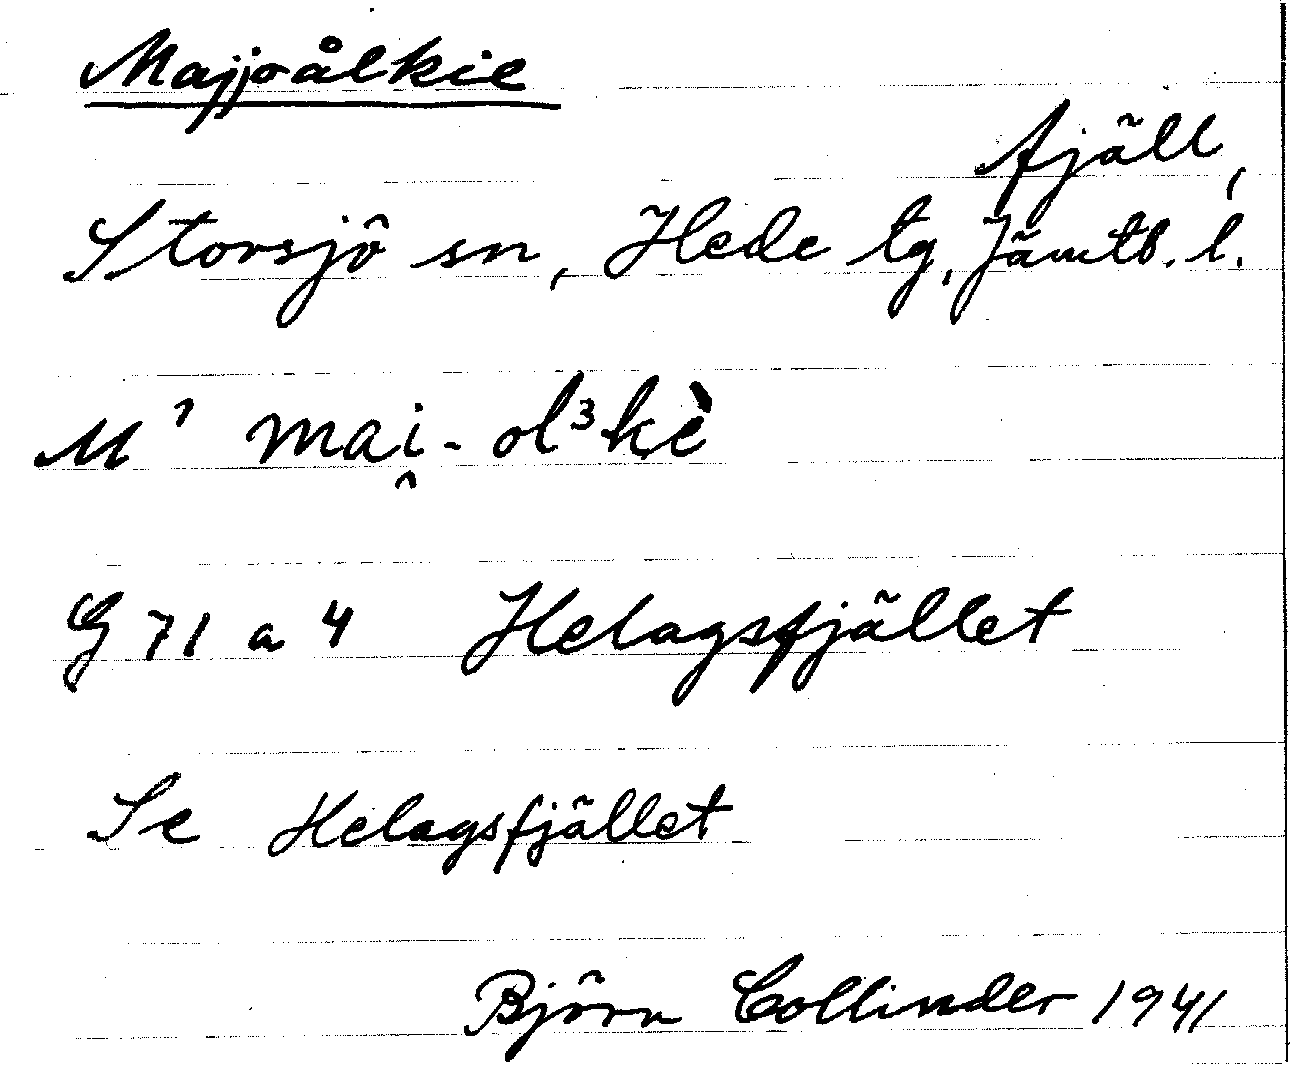 Majjoålkie
fjäll,
Storsjö sn, Hede tg, Jämtb. l.
M' mai̯-ol³kè
G 71 a 4 Helagsfjället
Se Helagsfjället
Björn Collinder 1941